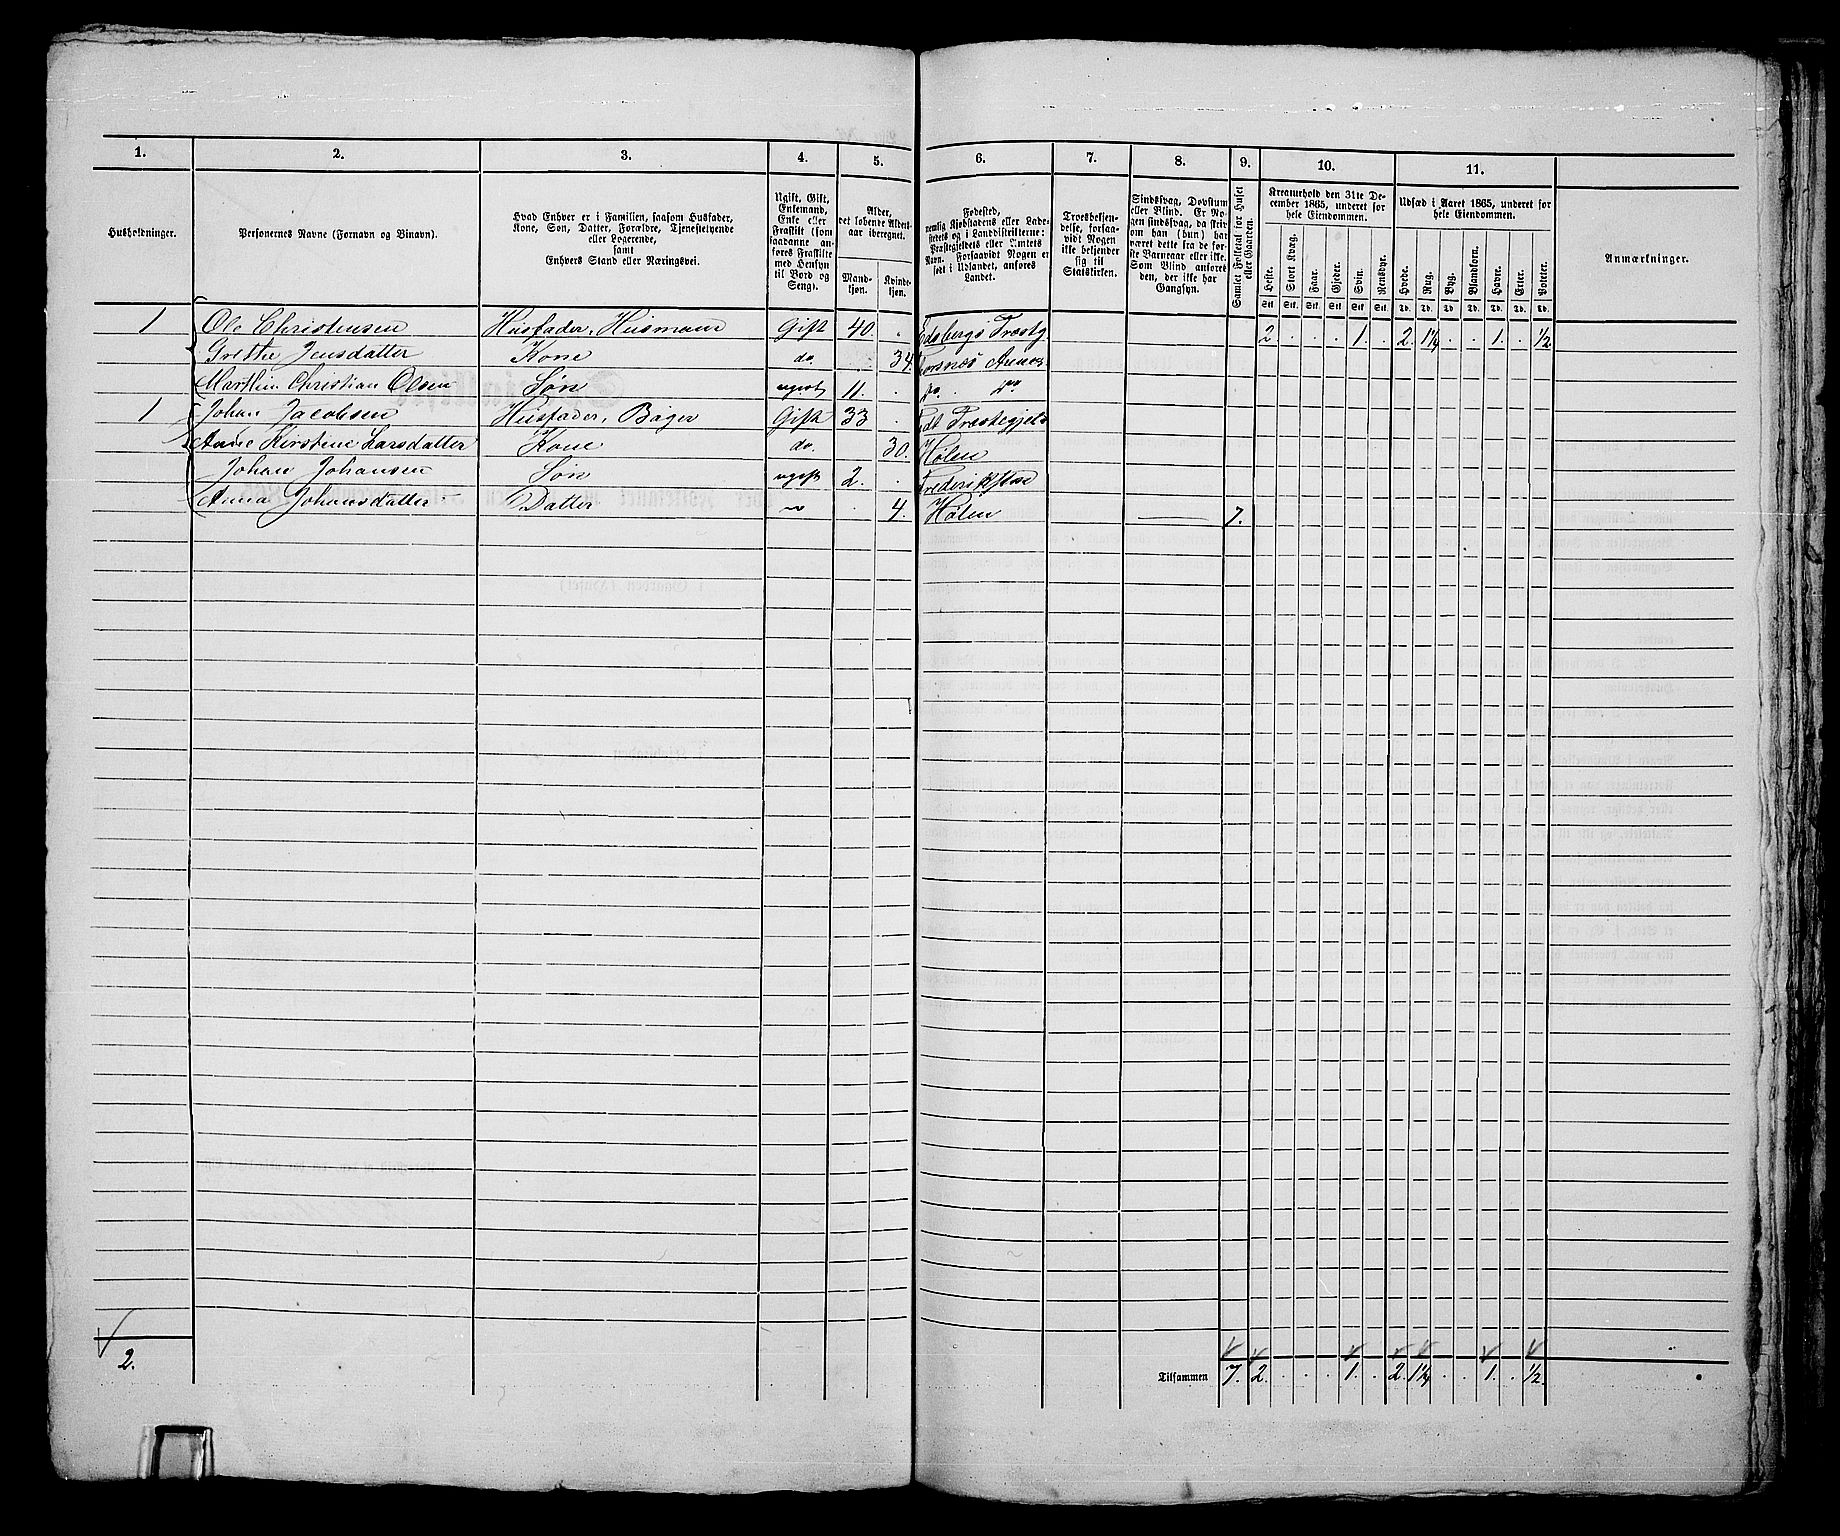 1. 2. 3. 4. 5. 6. 7. 8. 9. 10. 11.
Husholdninger.
Personernes Navne (Fornavn og Binavn).
Hvad Enhver er i Familien, saasom Husfader,
Kone, Søn, Datter, Forældre, Tjenestetyende
eller Logerende,
samt
Enhvers Stand eller Næringsvei.
Ugift, Gift,
Enkemand,
Enke eller
Fraskilt (som
saadanne an-
føres Fraskilte
med Hensyn
til Bord og
Seng).
Alder,
det løbende Alders-
aar iberegnet.
Mand-
kjøn.
Kvinde-
kjøn.
Fødested,
nemlig Kjøbstadens eller Lade-
stedets og i Landdistrikterne:
Præstegjeldets eller Amtets
Navn. Forsaavidt Nogen er
født i Udlandet, anføres
Landet.
Troesbekjen-
delse, forsaa-
vidt Nogen
ikke bekjender
sig til
Statskirken.
Sindssvag, Døvstum
eller Blind. Er No-
gen sindssvag, da skriv
om han (hun) har
været dette fra de før-
ste Barneaar eller ikke.
Som Blind anføres
den, der ikke har
Gangsyn.
Samlet Folketal for Huset
eller Gaarden.
Kreaturhold den 31te De-
cember 1865, underet for
hele Eiendommen.
Heste. Stort Kvæg. Faar. Gjeder. Svin. Rensdyr.
Stk. Stk. Stk. Stk. Stk. Stk.
Udsæd i Aaret 1865, underet for
hele Eiendommen.
Hvede. Rug. Byg. Blandkorn. Havre. Erter. Poteter.
Td. Td. Td. Td. Td. Td. Td.
Anmærkninger.
1 Ole Christensen Husfader, Husmand Gift 40. . Edsbergs Præstg. 2 . . . 1 . 2. 1¼ . . 1. . ½
Grethe Jensdatter Kone do. 34.
Marthin Christian Olsen Søn ugift 11. . do. do.
1 Johan Jacobsen Husfader, Bager Gift 33 . Præstegjeld
Anne Kirstine Larsdatter Kone do. 30. Hølen
Johan Johansen Søn ugift 2. . Frederikstad
Anna Johansdatter Datter . 4. Hølen 7.
2. Tilsammen 7. 2. . . . 1. . 2. 1¼ . . 1. . ½.